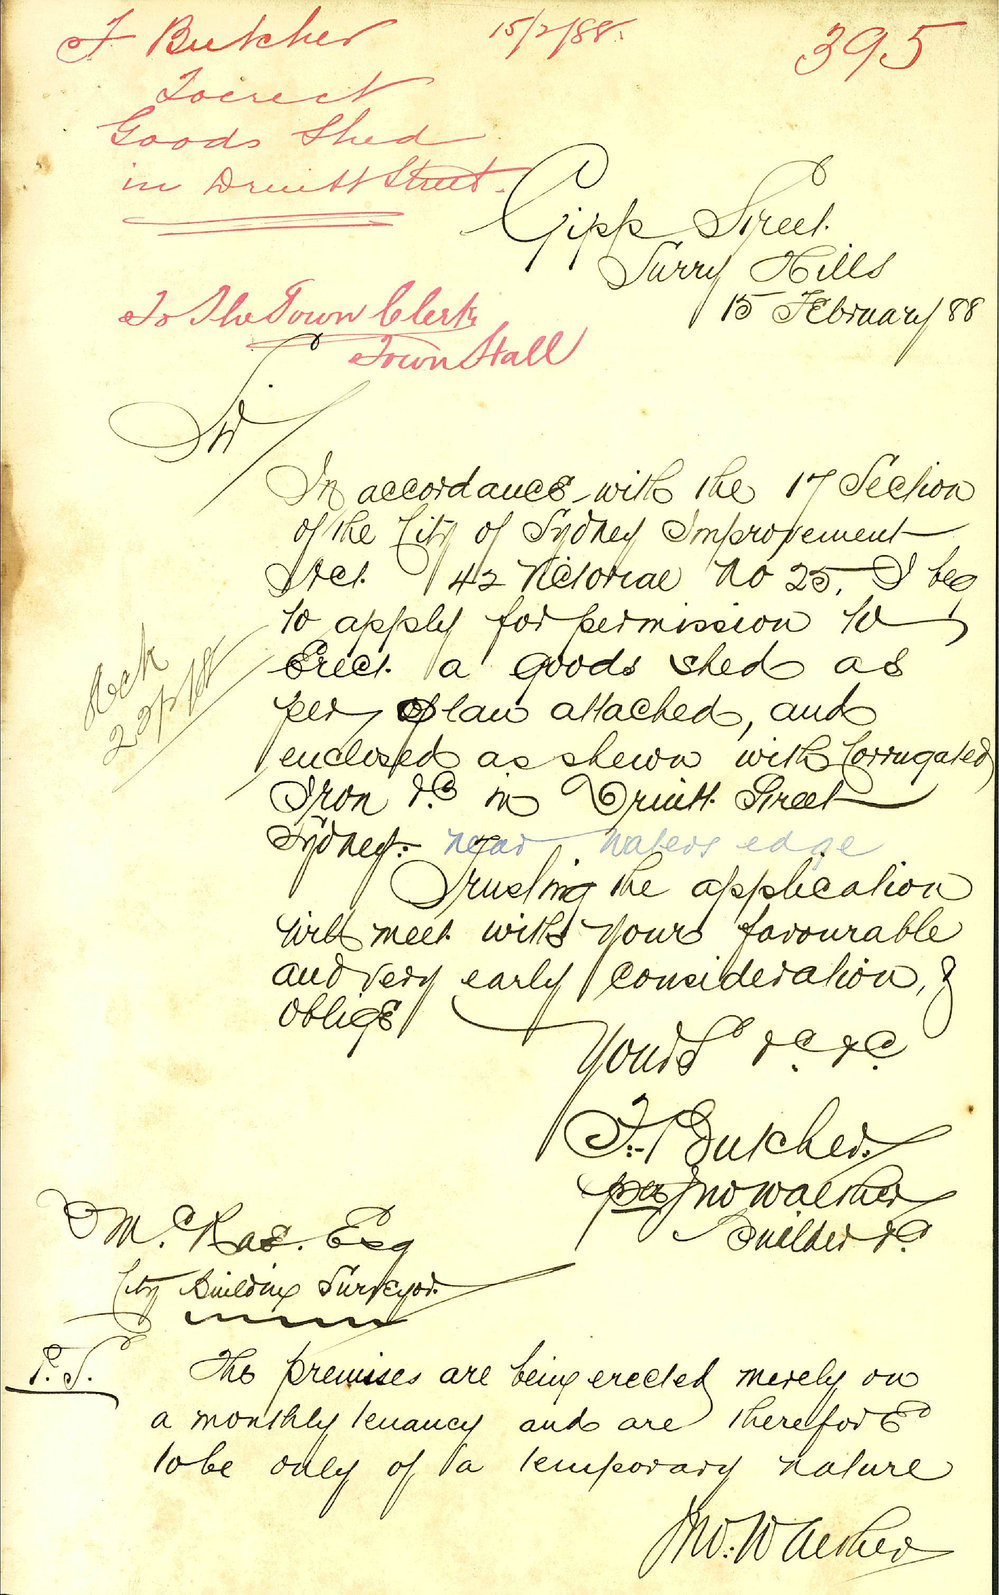 F Butcher
15/2/88.
395
To erect
Goods Shed
in Druitt Street.
Gipp Street.
Surry Hills
15 February 88
To The Town Clerk
Town Hall
Sir
In accordance with the 17 Section
of the City of Sydney Improvement
Act. 42 Victoriae No 25, I beg
to apply for permission to
Erect. a goods shed as
per plan attached, and
enclosed as shewn with Corrugated
Iron &c in Druitt Street
Sydney. near waters edge
Trusting the application
will meet with your favourable
and very early consideration, &
oblige
Yours &c &c.
F. Butcher.
per Jno
Builder &c.
Mc.Rae. Esq
City Building Surveyor.
P.S. The premises are being erected merely on
a monthly tenancy and are therefore
to be only of a temporary nature
Jno.